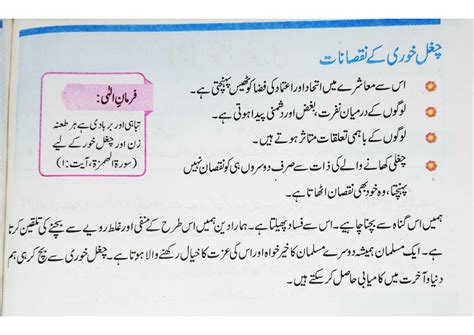 چغل خوری کے نقصانات
اس سے معاشرے میں اتحاد اور اعتماد کی فضا کو ٹھیس پہنچتی ہے۔
لوگوں کے درمیان نفرت، بغض اور دشمنی پیدا ہوتی ہے۔
لوگوں کے باہمی تعلقات متاثر ہوتے ہیں۔
چغلی کھانے والے کی ذات سے صرف دوسروں ہی کو نقصان نہیں
پہنچتا، وہ خود بھی نقصان اٹھاتا ہے۔
فرمانِ الٰہی:
تباہی اور بربادی ہے ہر طعنہ
زن اور چغل خور کے لیے
(سورۃ الھمزۃ، آیت:۱)
ہمیں اس گناہ سے بچنا چاہیے۔ اس سے فساد پھیلتا ہے۔ ہمارا دین ہمیں اس طرح کے منفی اور غلط رویے سے بچنے کی تلقین کرتا
ہے۔ ایک مسلمان ہمیشہ دوسرے مسلمان کا خیر خواہ اور اس کی عزت کا خیال رکھنے والا ہوتا ہے۔ چغل خوری سے بچ کر ہی ہم
دنیا و آخرت میں کامیابی حاصل کر سکتے ہیں۔